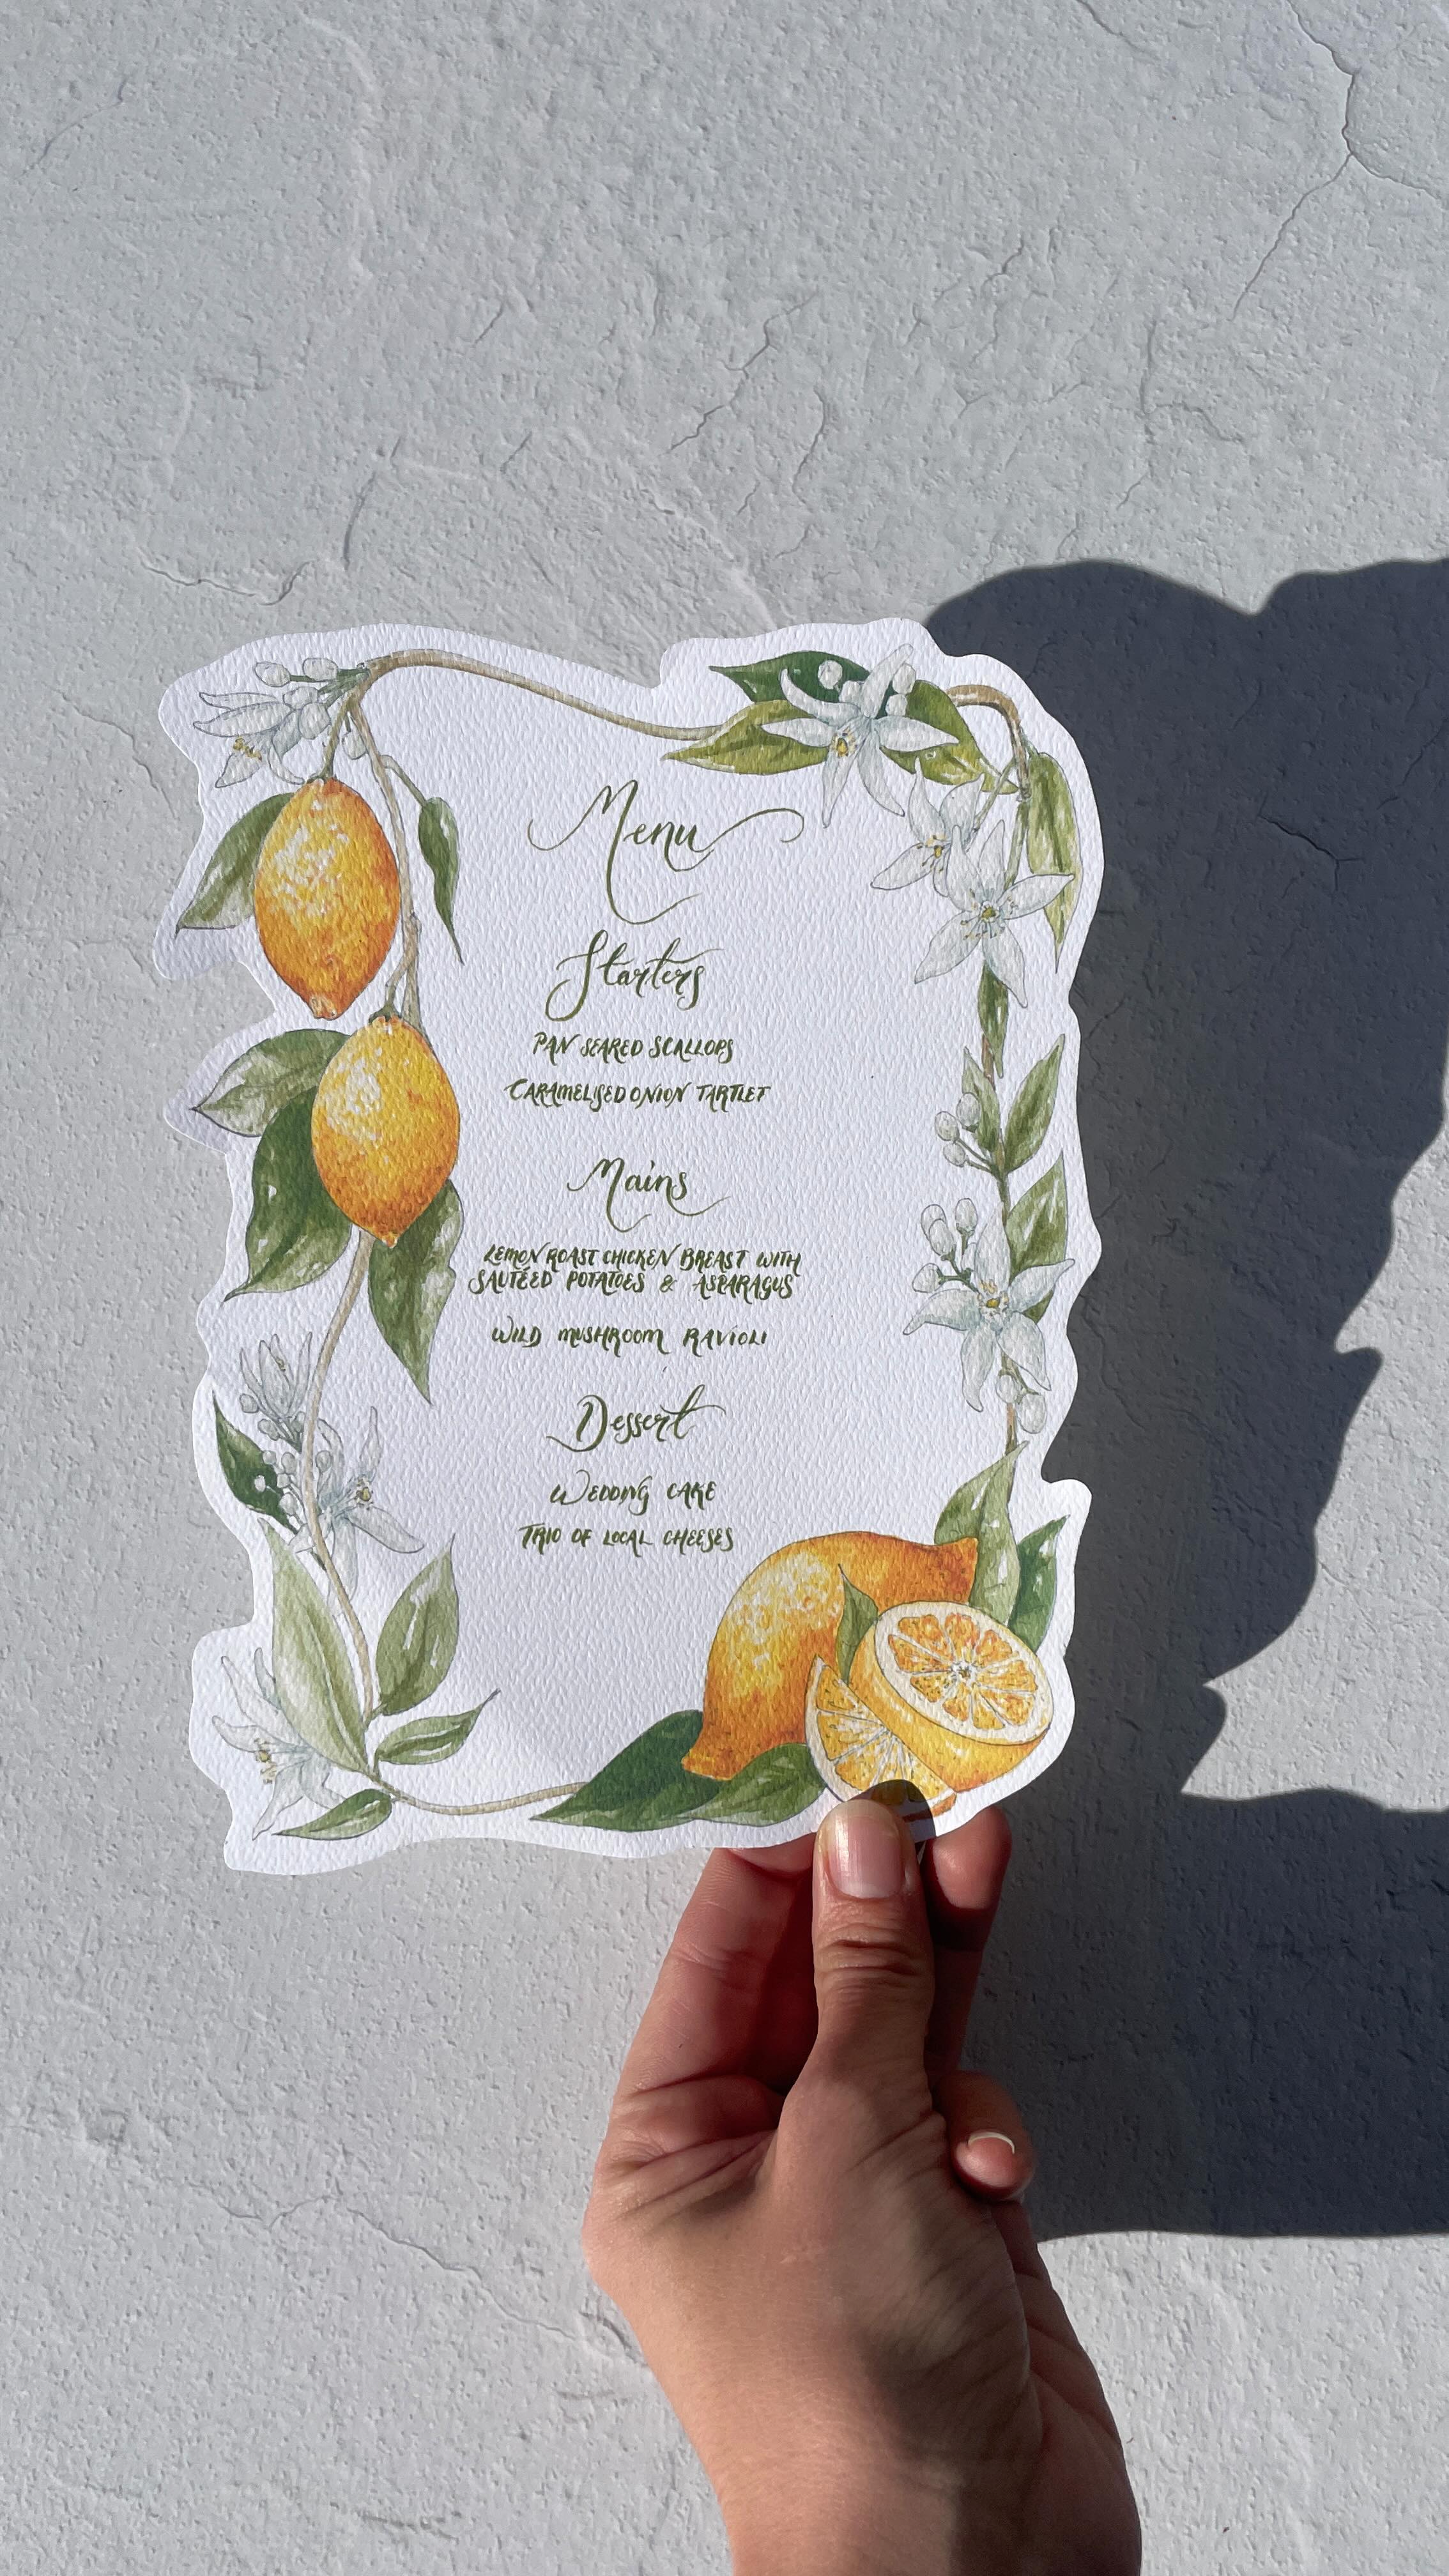 Menu
Starters
PAN SEARED SCALLOPS
CARAMELISED ONION TARTLET
Mains
LEMON ROAST CHICKEN BREAST WITH
SAUTÉED POTATOES & ASPARAGUS
WILD MUSHROOM RAVIOLI
Dessert
WEDDING CAKE
TRIO OF LOCAL CHEESES